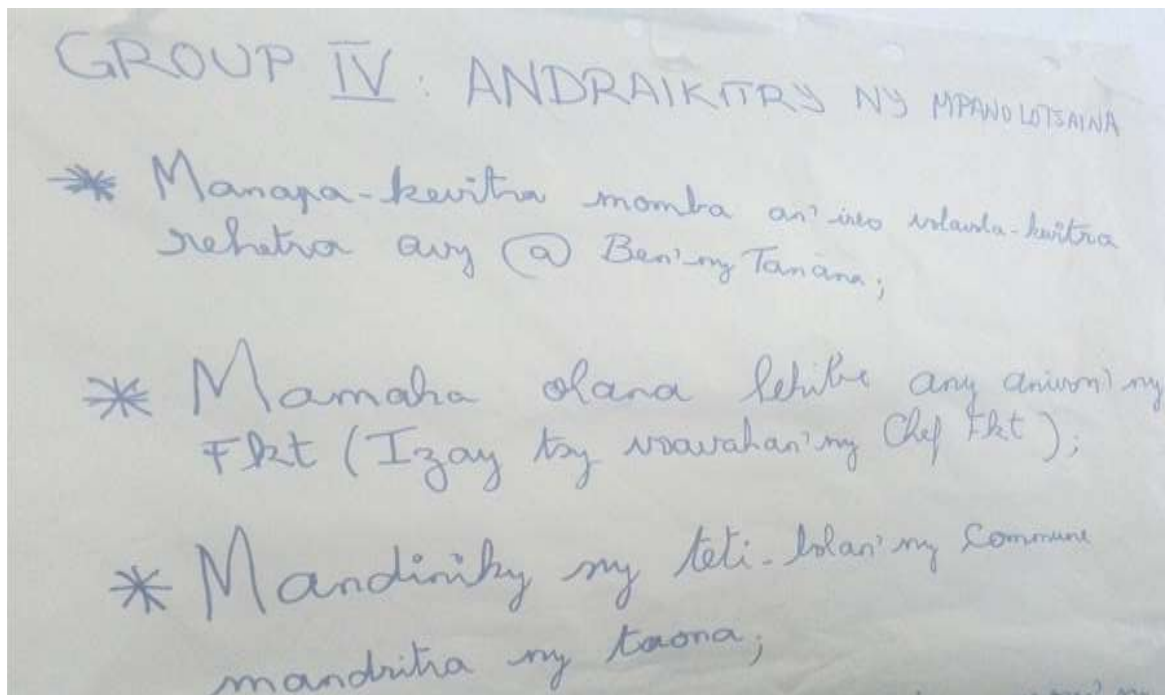 GROUP IV : ANDRAIKITRY NY MPANOLOTSAINA
* Manapa-kevitra momba an'ireo volavola-kevitra
rehetra avy @ Ben'ny Tanàna;
* Mamaha olana lehibe any anivon'ny
Fkt (Izay tsy voavahan'ny Chef Fkt);
* Mandiniky ny teti-bolan'ny Commune
mandritra ny taona;